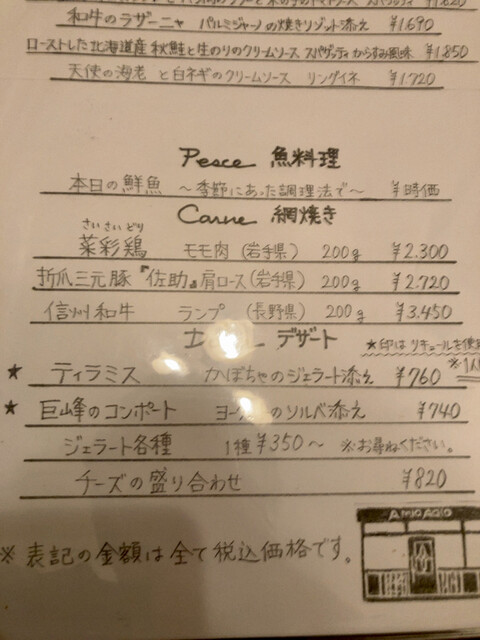 和牛のラザーニャ パルミジャーノの焼きリゾット添え ¥1,690
ローストした北海道産 秋鮭と生のりのクリームソース スパゲッティ からすみ風味 ¥1,850
天使の海老 と 白ネギのクリームソース リングイネ ¥1,720
Pesce 魚料理
本日の鮮魚 ～季節にあった調理法で～ ¥時価
Carne 網焼き
さいさいどり
菜彩鶏 モモ肉 (岩手県) 200g ¥2,300
折爪三元豚『佐助』肩ロース(岩手県) 200g ¥2,720
信州和牛 ランプ (長野県) 200g ¥3,450
デザート
★印はリキュールを使
★ ティラミス かぼちゃのジェラート添え ¥760
★ 巨峰のコンポート のソルベ添え ¥740
ジェラート各種 1種¥350～ ※お尋ねください。
チーズの盛り合わせ ¥820
※ 表記の金額は全て税込価格です。